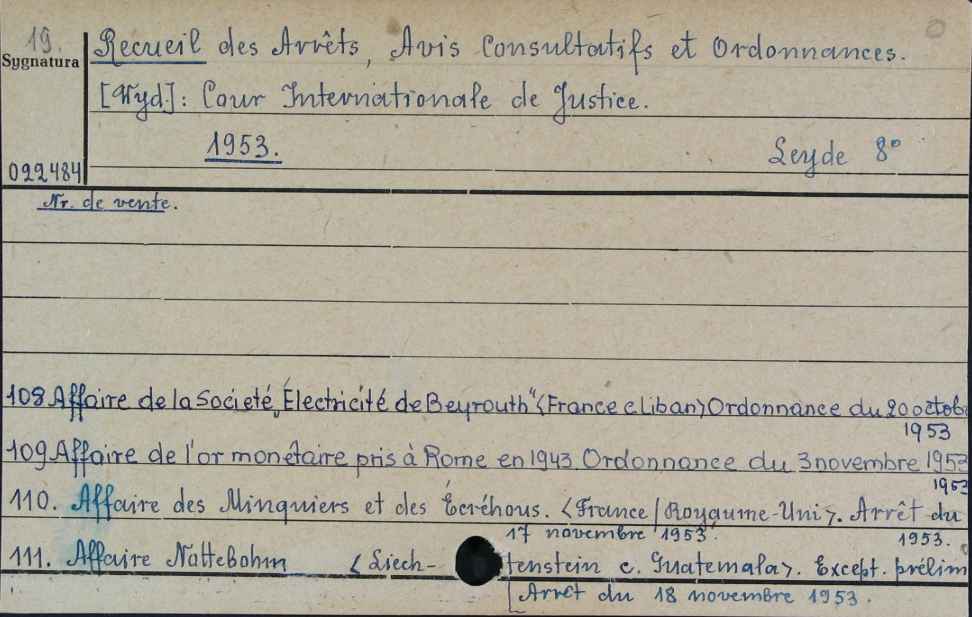 19.
Sygnatura
Recueil des Arrêts, Avis Consultatifs et Ordonnances.
[Wyd.]: Cour Internationale de Justice.
1953. Leyde 8°
022484
Nr. de vente.
108 Affaire de la Societé „Électricité de Beyrouth" <France c Liban> Ordonnance du 20 octob
1953
109 Affaire de l'or monétaire pris à Rome en 1943. Ordonnance du 3 novembre 1953
1953
110. Affaire des Minquiers et des Écréhous. <France / Royaume-Uni>. Arrêt du
17 novembre 1953. 1953.
111. Affaire Nottebohm <Liech- tenstein c. Guatemala>. Except. prélim
Arrêt du 18 novembre 1953.